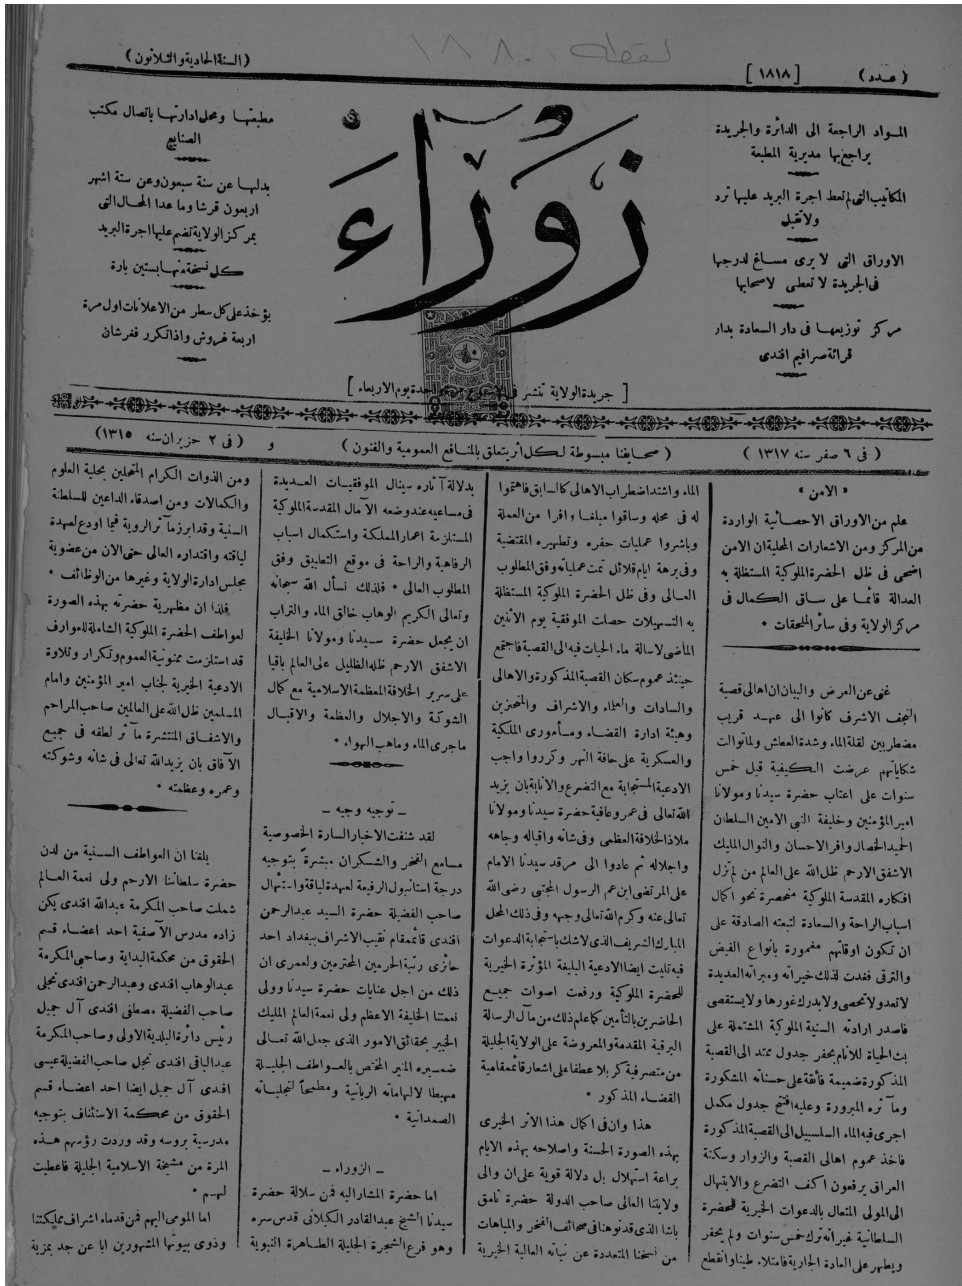 لقطه ١٨٨٠١
(عدد)
[١٨١٨]
(السنة الحادية والثلاثون)
المواد الراجعة الى الدائرة والجريدة
يراجع بها مديرية المطبعة
المكاتيب التى لم تعط اجرة البريد عليها ترد
ولا تقبل
الاوراق التى لا يرى مساغ لدرجها
فى الجريدة لا تعطى لاصحابها
مركز توزيعها فى دار السعادة بدار
قرائة صرافيم افندى
زوراء
مطبعتها ومحل ادارتها باتصال مكتب
الصنايع
بدلها عن سنة سبعون وعن ستة اشهر
اربعون قرشا وما عدا المحال التى
بمركز الولاية تضم عليها اجرة البريد
كل نسخة منها بستين بارة
يؤخذ على كل سطر من الاعلانات اول مرة
اربعة قروش واذا تكرر فقرشان
[جريدة الولاية تنشر فى الاسبوع مرة واحدة يوم الاربعاء]
(فى ٦ صفر سنه ١٣١٧)
(صحايفنا مبسوطة لكل اثر يتعلق بالمنافع العمومية والفنون)
و
(فى ٢ حزيران سنه ١٣١٥)
« الامن »
علم من الاوراق الاحصائية الواردة
من المركز ومن الاشعارات المحلية ان الامن
اضحى فى ظل الحضرة الملوكية المستظلة به
العدالة قائما على ساق الكمال فى
مركز الولاية وفى سائر الملحقات ٠
غنى عن العرض والبيان ان اهالى قصبة
النجف الاشرف كانوا الى عهد قريب
مضطربين لقلة الماء وشدة العطش ولما توالت
شكاياتهم عرضت الكيفية قبل خمس
سنوات على اعتاب حضرة سيدنا ومولانا
امير المؤمنين وخليفة النبى الامين السلطان
الحميد الخصار وافر الاحسان والنوال المليك
الاشفق الارحم ظل الله على العالم من لم تزل
افكاره المقدسة الملوكية منحصرة نحو اكمال
اسباب الراحة والسعادة لتبعته الصادقة على
ان تكون اوقاتهم مغمورة بانواع الفيض
والترقى فغدت لذلك خيراته ومبراته العديدة
لا تعد ولا تحصى ولا يدرك غورها ولا يستقصى
فاصدر ارادته السنية الملوكية المشتملة على
بث الحياة للأنام بحفر جدول ممتد الى القصبة
المذكورة ضميمة فأئقة على حسناته المشكورة
ومآثره المبرورة وعليه افتح جدول مكمل
اجرى فيه الماء السلسبيل الى القصبة المذكورة
فاخذ عموم اهالى القصبة والزوار وسكنة
العراق يرفعون اكف التضرع والابتهال
الى المولى المتعال بالدعوات الخيرية للحضرة
السلطانية غير انه ترك خمس سنوات ولم يحفر
ويطهر على العادة الجارية فامتلاء طينا وانقطع
الماء واشتد اضطراب الاهالى كالسابق فاهتموا
له فى محله وساقوا مبلغا وافرا من العملة
وباشروا عمليات حفره وتطهيره المقتضية
وفى برهة ايام قلائل تمت عملياته وفق المطلوب
العالى وفى ظل الحضرة الملوكية المستظلة
به التسهيلات حصلت الموفقية يوم الاثنين
الماضى لاسالة ماء الحيات فيه الى القصبة فاجتمع
حينئذ عموم سكان القصبة المذكورة والاهالى
والسادات والعلماء والاشراف والمتحيزين
وهيئة ادارة القضاء ومأمورى الملكية
والعسكرية على حافة النهر وكرروا واجب
الادعية المستجابة مع التضرع والانابة بان يزيد
الله تعالى فى عمر وعافية حضرة سيدنا ومولانا
ملاذ الخلافة العظمى وفى شانه واقباله وجاهه
واجلاله ثم عادوا الى مرقد سيدنا الامام
على المرتضى ابن عم الرسول المجتبى رضى الله
تعالى عنه وكرم الله تعالى وجهه وفى ذلك المحل
المبارك الشريف الذى لا شك باستجابة الدعوات
فيه تليت ايضا الادعية البليغة المؤثرة الخيرية
للحضرة الملوكية ورفعت اصوات جميع
الحاضرين بالتأمين كما علم ذلك من مآل الرسالة
البرقية المقدمة والمعروضة على الولاية الجليلة
من متصرفية كربلا عطفا على اشعار قائممقامية
القضاء المذكور ٠
هذا وان فى اكمال هذا الاثر الخيرى
بهذه الصورة الحسنة واصلاحه بهذه الايام
براعة استهلال بل دلالة قوية على ان والى
ولايتنا العالى صاحب الدولة حضرة نامق
باشا الذى قد نوهنا فى صحائف الفخر والمباهات
من نسخنا المتعددة عن نياته العالية الخيرية
بدلالة آثاره سينال الموفقيات العديدة
فى مساعيه عند وضعه الآمال المقدسة الملوكية
المستلزمة اعمار المملكة واستكمال اسباب
الرفاهية والراحة فى موقع التطبيق وفق
المطلوب العالى ٠ فلذلك نسأل الله سبحانه
وتعالى الكريم الوهاب خالق الماء والتراب
ان يجعل حضرة سيدنا ومولانا الخليفة
الاشفق الارحم ظله الظليل على العالم باقيا
على سرير الخلافة المعظمة الاسلامية مع كمال
الشوكة والاجلال والعظمة والاقبال
ما جرى الماء وماهب الهواء ٠
ـ توجيه وجيه ـ
لقد شنفت الاخبار السارة الخصوصية
مسامع الفخر والشكران مبشرة بتوجيه
درجة استانبول الرفيعة لعهدة لياقة واستئهال
صاحب الفضيلة حضرة السيد عبد الرحمن
افندى قائممقام نقيب الاشراف ببغداد احد
حائزى رتبة الحرمين المحترمين ولعمرى ان
ذلك من اجل عنايات حضرة سيدنا وولى
نعمتنا الخليفة الاعظم ولى نعمة العالم المليك
الخبير بحقائق الامور الذى جعل الله تعالى
ضميره المنير المختص بالعواطف الجليلة
مهبطا لالهاماته الربانية ومطمحا لتجلياته
الصمدانية ٠
ـ الزوراء ـ
اما حضرة المشار اليه فمن سلالة حضرة
سيدنا الشيخ عبد القادر الكيلانى قدس سره
وهو فرع الشجرة الجليلة الطاهرة النبوية
ومن الذوات الكرام المتحلين بحلية العلوم
والكمالات ومن اصدقاء الداعين للسلطنة
السنية وقد ابرز مآثر الروية فيما اودع لعهدة
لياقته واقتداره العالى حتى الان من عضوية
مجلس ادارة الولاية وغيرها من الوظائف ٠
فلذا ان مظهرية حضرته بهذه الصورة
لعواطف الحضرة الملوكية الشاملة للعوارف
قد استلزمت ممنونية العموم وتكرار وتلاوة
الادعية الخيرية لجناب امير المؤمنين وامام
المسلمين ظل الله على العالمين صاحب المراحم
والاشفاق المنتشرة مآثر لطفه فى جميع
الآفاق بان يزيد الله تعالى فى شانه وشوكته
وعمره وعظمته ٠
بلغنا ان العواطف السنية من لدن
حضرة سلطاننا الارحم ولى نعمة العالم
شملت صاحب المكرمة عبد الله افندى يكن
زاده مدرس الآصفية احد اعضاء قسم
الحقوق من محكمة البداية وصاحبى المكرمة
عبد الوهاب افندى وعبد الرحمن افندى نجلى
صاحب الفضيلة مصطفى افندى آل جميل
رئيس دائرة البلدية الاولى وصاحب المكرمة
عبد الباقى افندى نجل صاحب الفضيلة عيسى
افندى آل جميل ايضا احد اعضاء قسم
الحقوق من محكمة الاستئناف بتوجيه
مدرسية بروسه وقد وردت رؤسهم هذه
المرة من مشيخة الاسلامية الجليلة فاعطيت
لهم ٠
اما المومى اليهم فمن قدماء اشراف مملكتنا
وذوى بيوتها المشهورين ابا عن جد بمزية